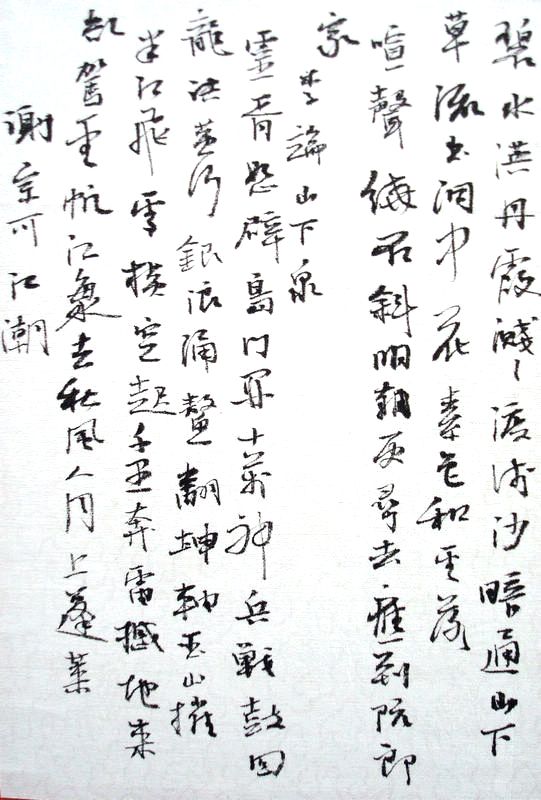 碧水映丹霞濺濺渡淺沙暗通山下
草流出洞中花素色和雲落
喧聲繞石斜明朝更尋去應到阮郎
家
李端山下泉
靈胥怒辟島門開十萬神兵戰鼓回
龍銀浪涌鰲翻坤軸玉山摧
半江飛雪橫空起千里奔雷撼地來
欲駕雲帆江去秋風八月上蓬萊
謝宗可江潮